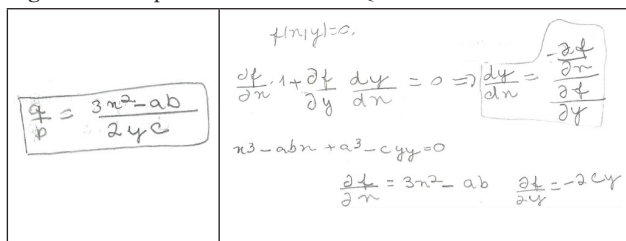 q/p = (3x²-ab)/(2yc)
f(x,y)=0.
∂f/∂x · 1 + ∂f/∂y dy/dx = 0 => dy/dx = (-∂f/∂x)/(∂f/∂y)
x3 - abx + a³ - cyy = 0
∂f/∂x = 3x² - ab ∂f/∂y = -2cy